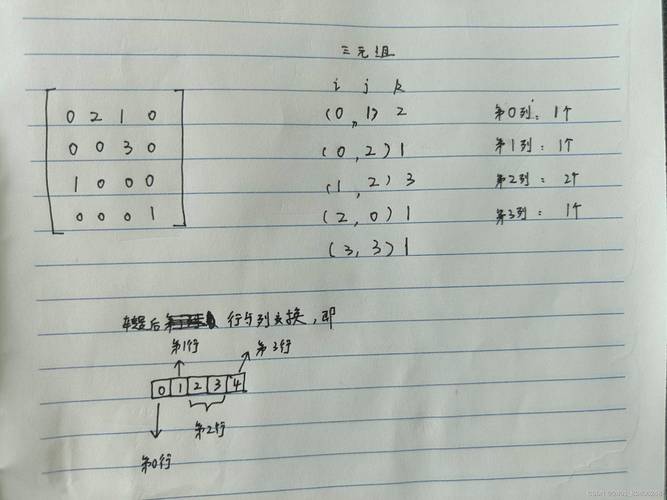 三元组
i j k
0 2 1 0
0 0 3 0
1 0 0 0
0 0 0 1
(0,1) 2
(0,2) 1
(1,2) 3
(2,0) 1
(3,3) 1
第0列: 1个
第1列: 1个
第2列: 2个
第3列: 1个
后 行与列互换,即
第1行 第3行
0 1 2 3 4
第2行
第0行